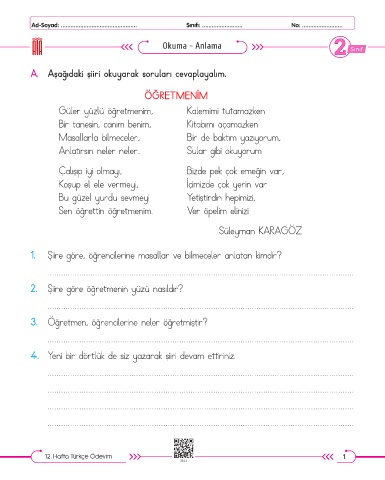 Ad-Soyad: ................................................ Sınıfı: ......................... No: .........................
Okuma - Anlama
2. Sınıf
A. Aşağıdaki şiiri okuyarak soruları cevaplayalım.
ÖĞRETMENİM
Güler yüzlü öğretmenim,
Bir tanesin, canım benim,
Masallarla bilmeceler,
Anlatırsın neler neler..
Çalışıp iyi olmayı,
Koşup el ele vermeyi,
Bu güzel yurdu sevmeyi
Sen öğrettin öğretmenim.
Kalemimi tutamazken
Kitabımı açamazken
Bir de baktım yazıyorum,
Sular gibi okuyorum
Bizde pek çok emeğin var,
İçimizde çok yerin var
Yetiştirdin hepimizi,
Ver öpelim elinizi
Süleyman KARAGÖZ
1. Şiire göre, öğrencilerine masallar ve bilmeceler anlatan kimdir?
2. Şiire göre öğretmenin yüzü nasıldır?
3. Öğretmen, öğrencilerine neler öğretmiştir?
4. Yeni bir dörtlük de siz yazarak şiiri devam ettiriniz.
12. Hafta Türkçe Ödevim
1